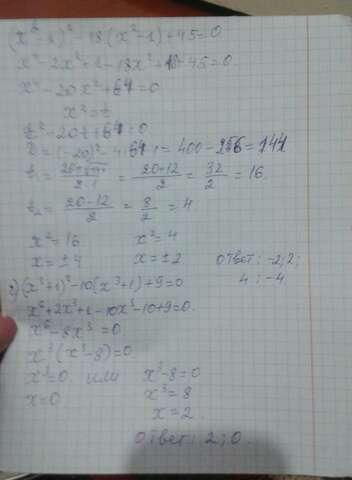 (x²-1)²-18(x²-1)+45=0
x⁴-2x²+1-18x²+18-45=0
x⁴-20x²+64=0
x²=t
t²-20t+64=0
D=(-20)²-4·64·1=400-256=144
t₁= (20+√144)/(2·1) = (20+12)/2 = 32/2 =16
t₂= (20-12)/2 = 8/2 =4
x²=16 x²=4
x=±4 x=±2 Ответ: -2;2;
4;-4
2)(x³+1)²-10(x³+1)+9=0
x⁶+2x³+1-10x³-10+9=0
x⁶-8x³=0
x³(x³-8)=0
x³=0 или x³-8=0
x=0 x³=8
x=2
Ответ: 2;0.